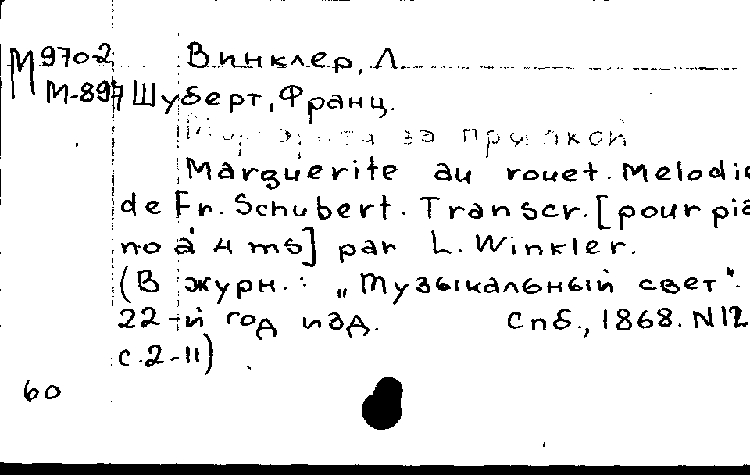 М 970-2 Винклер, Л.
М-897 Шуберт, Франц.
Маргарита за прялкой
Marguerite au rouet. Melodie
de Fr. Schubert. Transcr. [pour pia
no à 4 ms] par L. Winkler.
(В журн.: „Музыкальный свет".
22-й год изд. Спб., 1868. N12
с. 2-11)
60